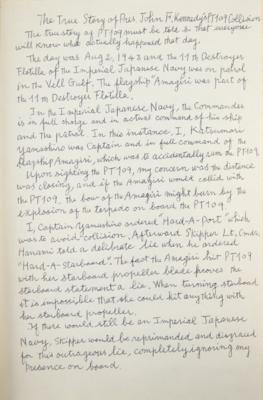 The True Story of Pres. John F. Kennedy's PT109 Collision
The true story of PT109 must be told so that everyone
will know what actually happened that day.
The day was Aug 2, 1943 and the 11th Destroyer
Flotilla of the Imperial Japanese Navy was on patrol
in the Vell Gulf. The flagship Amagiri was part of
the 11th Destroyer Flotilla.
In the Imperial Japanese Navy, the Commander
is in full charge and in actual command of his ship
and the patrol. In this instance, I, Katsumori
Yamashiro was Captain and in full command of the
flagship Amagiri, which was to accidentally ram the PT109
Upon sighting the PT109, my concern was the distance
was closing, and if the Amagiri would collid with
the PT109, the bow of the Amagiri might burn by the
explosion of the torpedo on board the PT109.
I, Captain Yamashiro ordered "Hard-A-Port" which
was to avoid collision. Afterward Skipper Lt. Cmdr.
Hanami told a delibrate lie when he ordered
"Hard-A-Starboard". The fact the Amagiri hit PT109
with her starboard propeller blade proves the
starboard statement a lie. When turning starboard
it is impossible that she could hit anything with
her starboard propeller.
If there would still be an Imperial Japanese
Navy, Skipper would be reprimanded and disgraced
for this outrageous lie, completely ignoring my
presence on board.